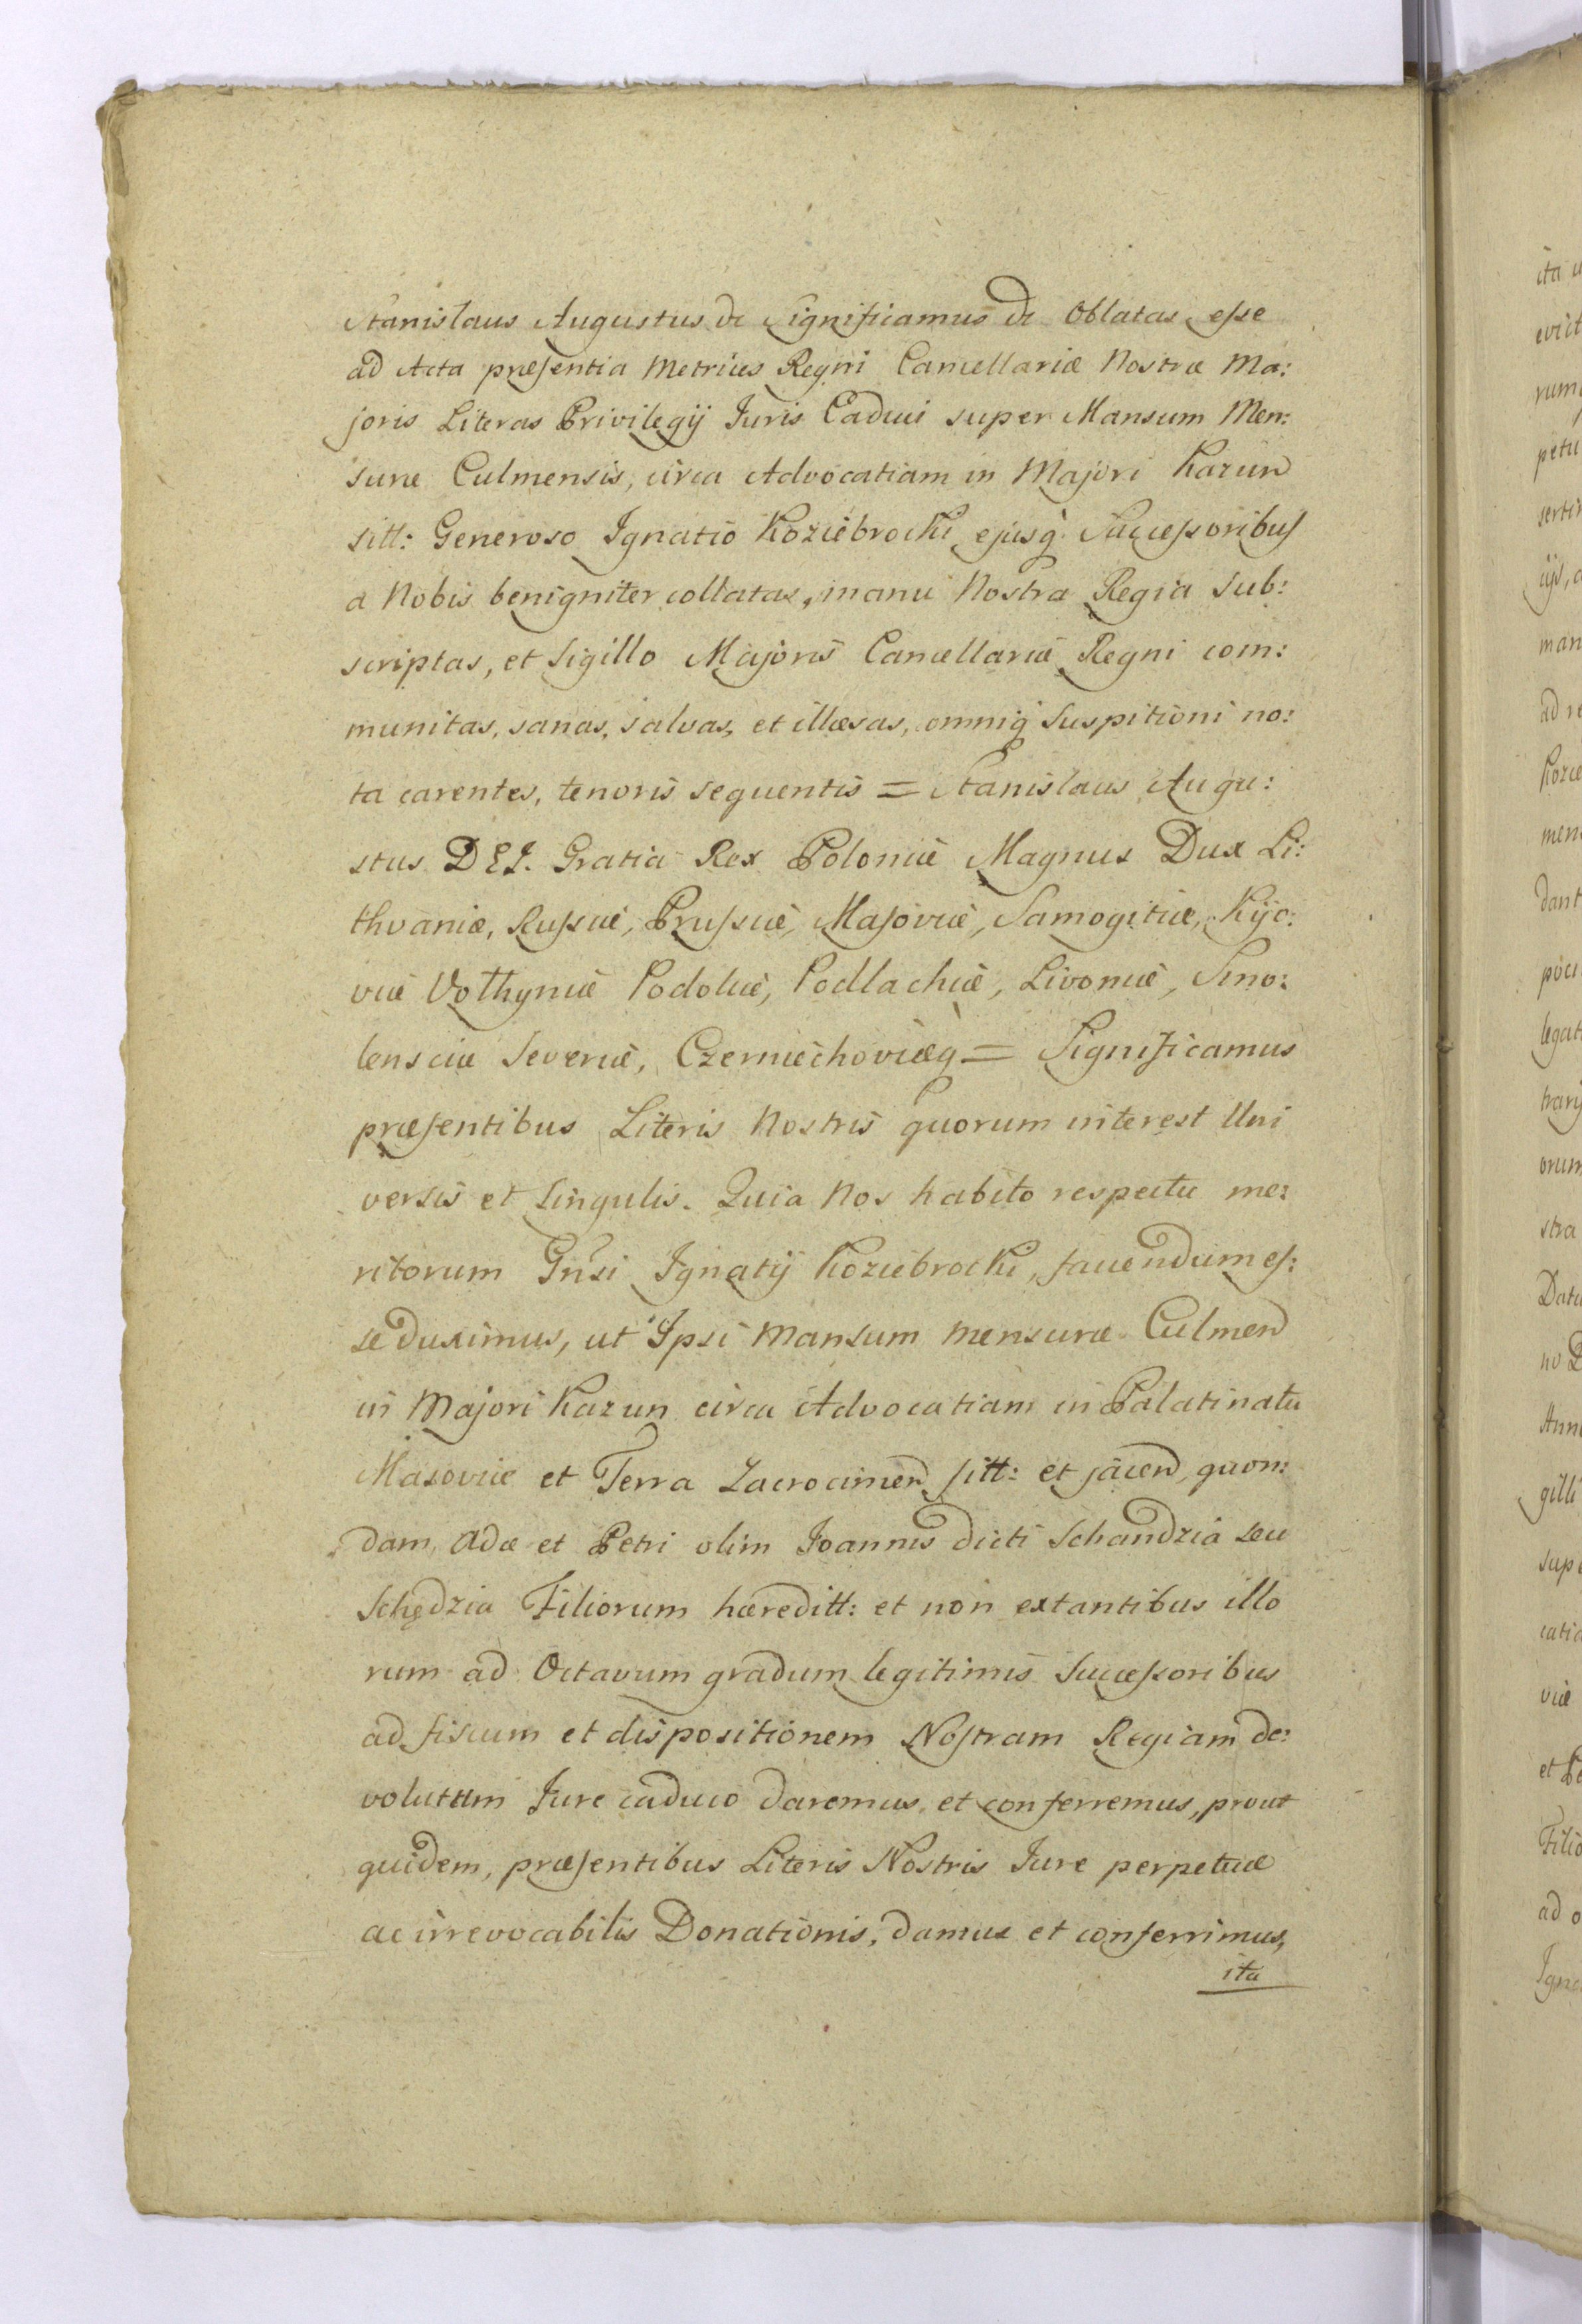 Stanislaus Augustus &c Significamus &c Oblatas esse
ad Acta præsentia Metrices Regni Cancellariæ Nostræ Ma:
joris Literas Privilegij Juris Caduci super Mansum Men:
suræ Culmensis, circa Advocatiam in Majori Kazun
sitt: Generoso Ignatio Koziebrocki ejusq̀ Successoribus
a Nobis benigniter collatas, manu Nostra Regia sub:
scriptas, et Sigillo Majoris Cancellariæ Regni com:
munitas, sanas, salvas, et illæsas, omniq̀ Suspitioni no:
ta carentes, tenoris sequentis = Stanislaus Augu:
stus DEI. Gratia Rex Poloniæ Magnus Dux Li:
thvaniæ, Russiæ, Prussiæ, Masoviæ, Samogitiæ, Kijo:
viæ Volhyniæ Podoliæ, Podlachiæ, Livoniæ, Smo:
lensciæ Severiæ, Czerniechoviæq̀ = Significamus
præsentibus Literis Nostris quorum interest Uni
versis et Singulis. Quia Nos habito respectu me:
ritorum Gnsi Ignatij Koziebrocki, favendum es:
se duximus, ut Ipsi Mansum mensuræ Culmen
in Majori Kazun circa Advocatiam in Palatinatu
Masoviæ et Terra Zacrocimen sitt: et jacen, quon:
dam Adæ et Petri olim Joannis dicti Schandzia seu
Schędzia Filiorum hæreditt: et non extantibus illo
rum ad Octavum gradum legitimis Successoribus
ad fiscum et dispositionem Nostram Regiam de:
volutum Jure caduco daremus et conferremus, prout
quidem, præsentibus Literis Nostris Jure perpetuæ
ac irrevocabilis Donationis, damus et conferrimus,
ita